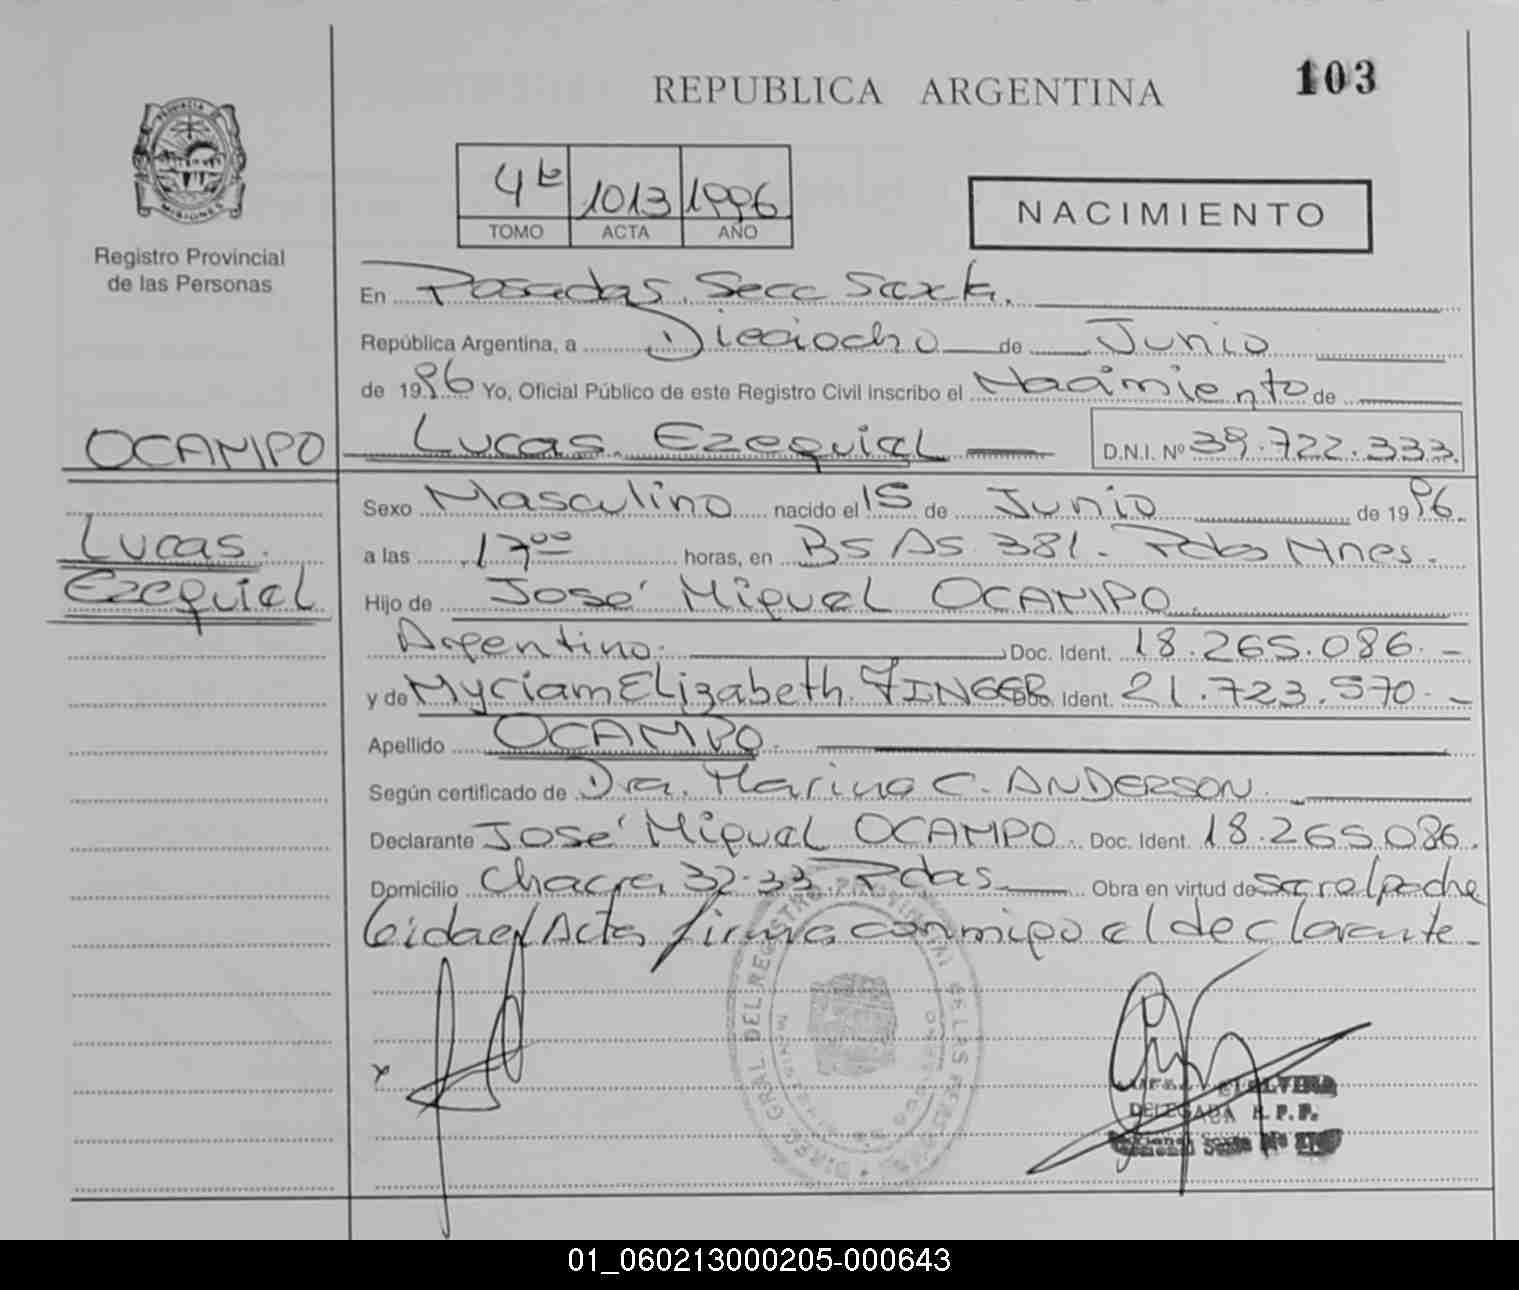 REPUBLICA ARGENTINA
103
PROVINCIA DE
MISIONES
Registro Provincial
de las Personas
4to 1013 1996
TOMO ACTA AÑO
NACIMIENTO
En Posadas. Secc Sexta.
República Argentina, a Dieciocho de Junio
de 1996 Yo, Oficial Público de este Registro Civil inscribo el Nacimiento de
OCAMPO
Lucas Ezequiel D.N.I. Nº 39.722.333.
Lucas
Ezequiel
Sexo Masculino nacido el 15 de Junio de 1996.
a las 17 00 horas, en Bs As 381. Pdas Mnes.
Hijo de José Miguel OCAMPO
Argentino. Doc. Ident. 18.265.086.-
y de Myriam Elizabeth. Doc. Ident. 21.723.570.-
Apellido OCAMPO.
Según certificado de Dra. Marina C. ANDERSON.
Declarante José Miguel OCAMPO. Doc. Ident. 18.265.086.
Domicilio Chacra 32-33. Pdas. Obra en virtud de
Leida el Acta firma conmigo el declarante.
x
DELEGADA R.P.P.
01_060213000205-000643